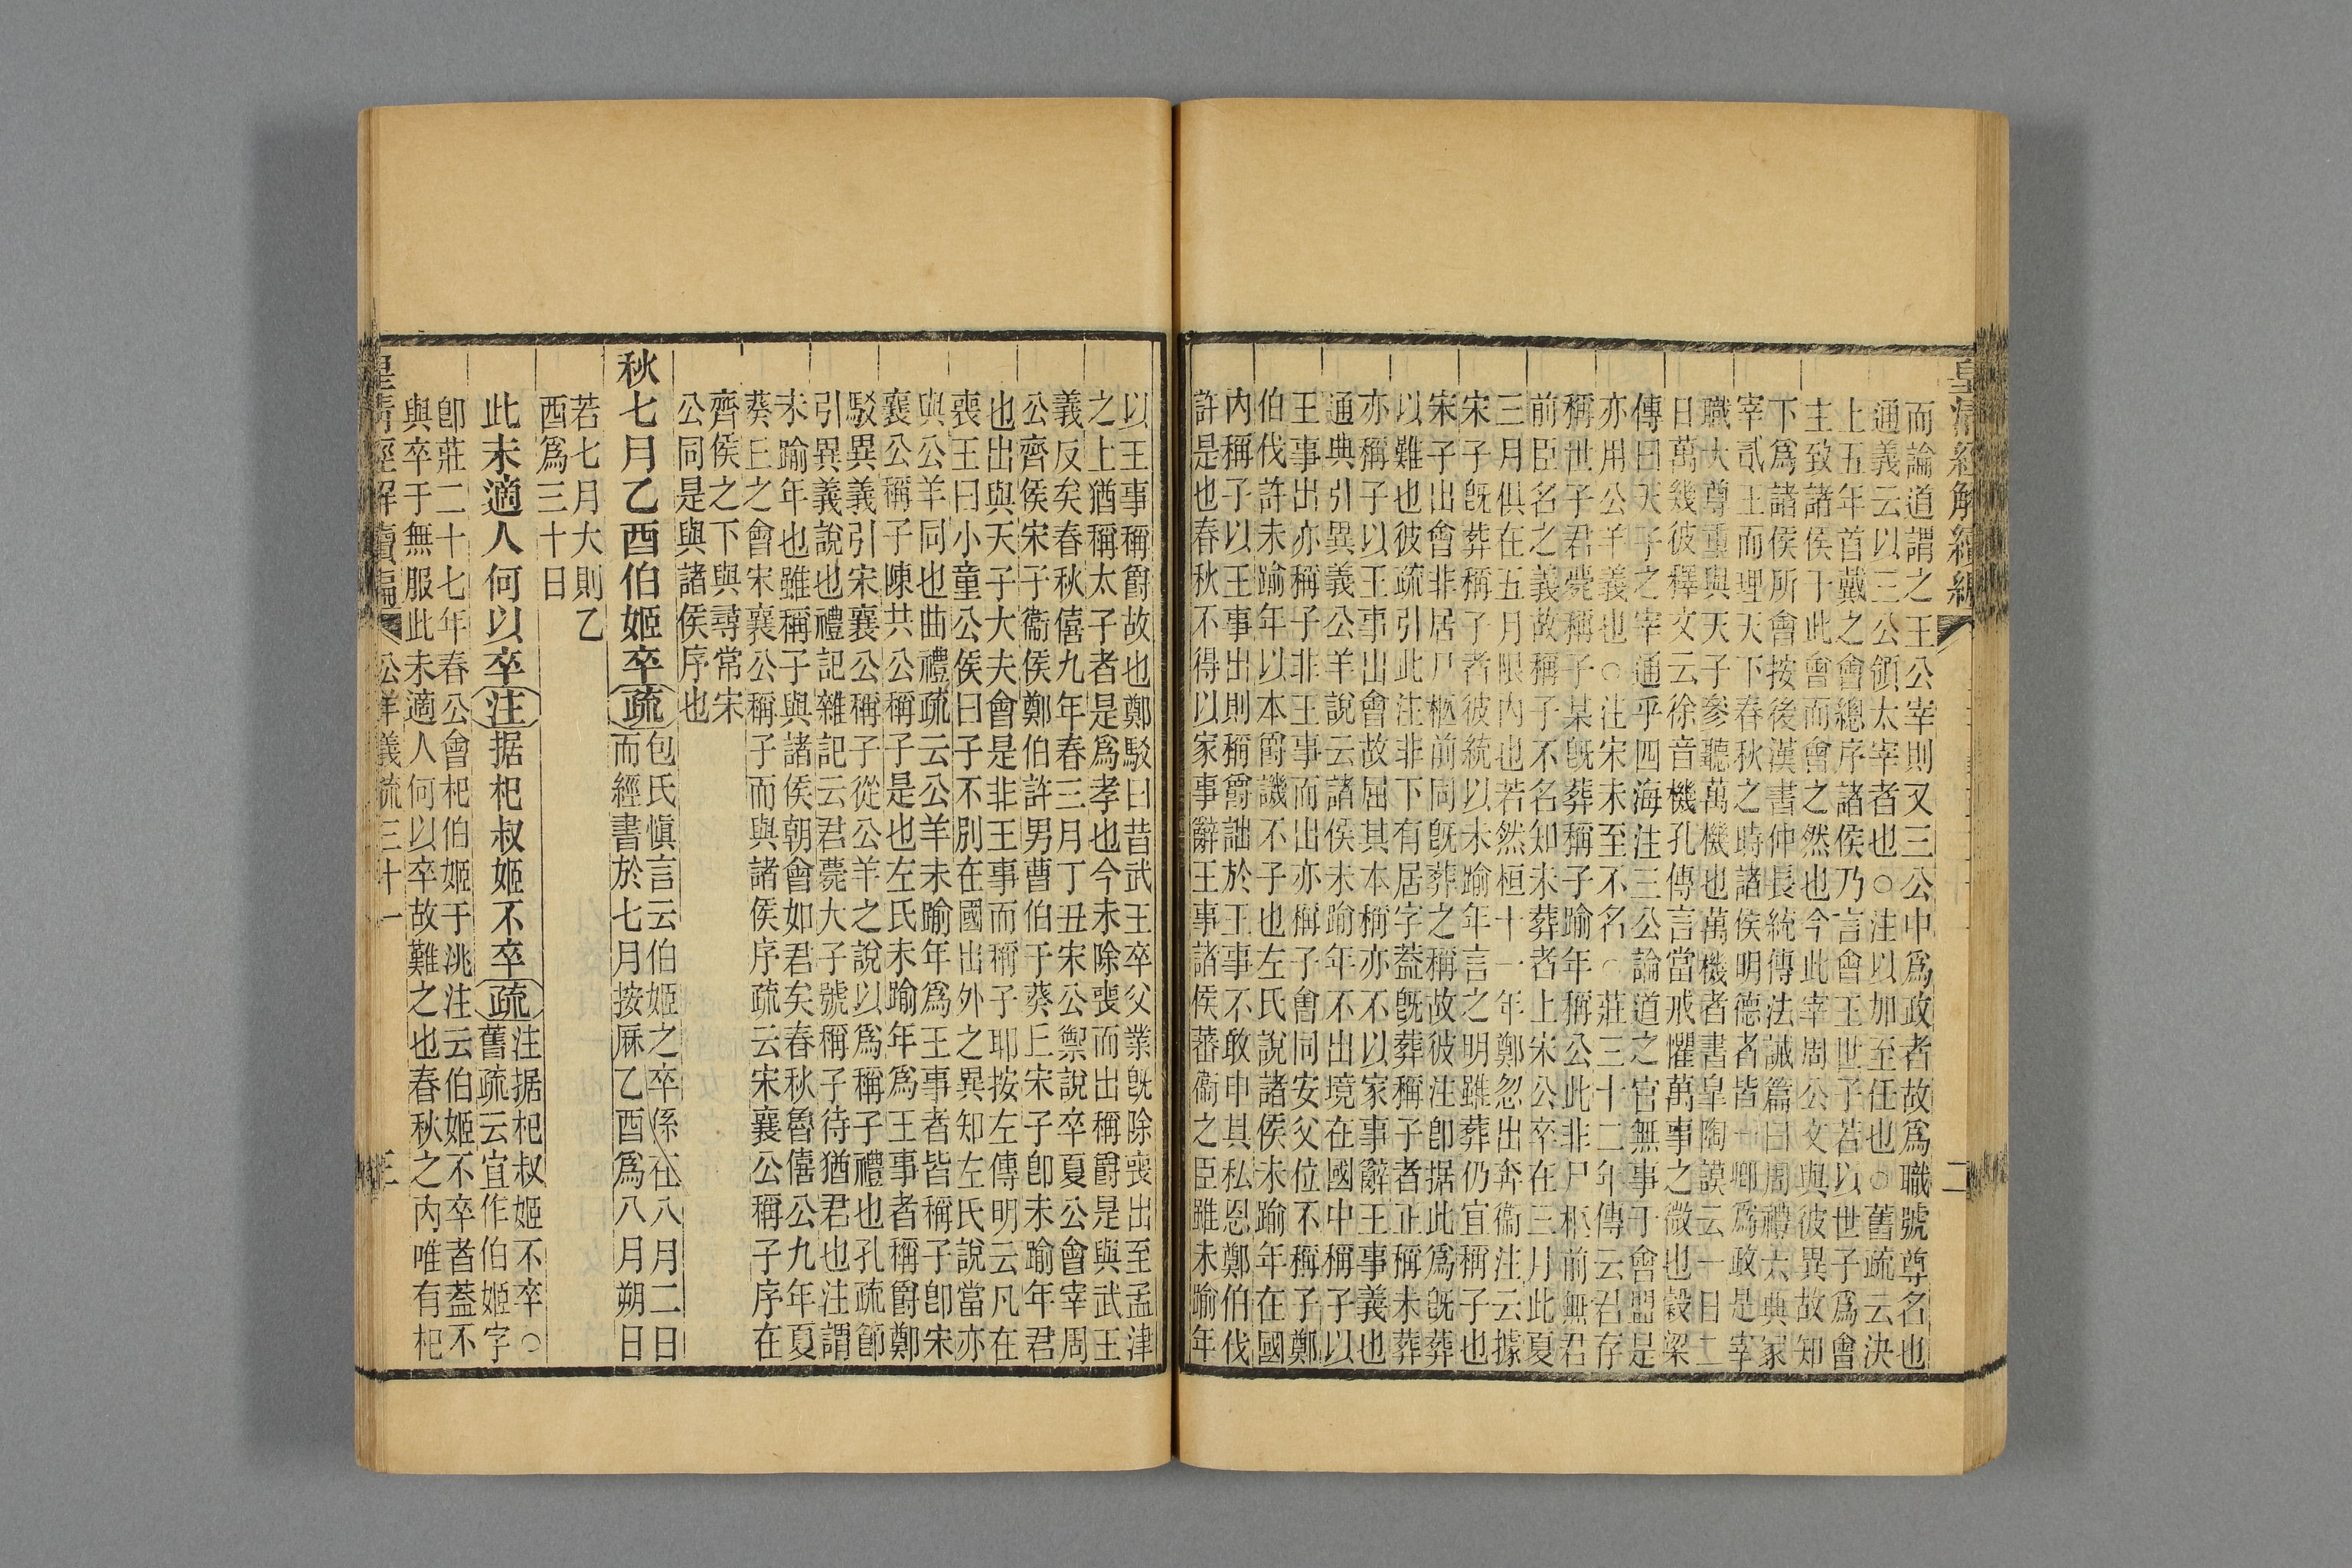 皇清經解續編
二
而論道謂之王公宰則又三公中爲政者故爲職號尊名也
通義云以三公領太宰者也○注以加至任也○舊疏云決
上五年首戴之會總序諸侯乃言會王世子若以世子爲會
主致諸侯于此會而會之然也今此宰周公文與彼異故知
下爲諸侯所會按後漢書仲長統傳法誡篇曰周禮六典冢
宰貳王而理天下春秋之時諸侯明德者皆一卿爲政是宰
職大尊重與天子參聽萬機也萬機者書皐陶謨云一日二
日萬幾彼釋文云徐音機孔傳言當戒懼萬事之微也穀梁
傳曰天子之宰通乎四海注三公論道之官無事于會盟是
亦用公羊義也○注宋未至不名○莊三十二年傳云君存
稱世子君薨稱子某旣葬稱子踰年稱公此非尸柩前無君
前臣名之義故稱子不名知未葬者上宋公卒在三月此夏
三月俱在五月限內也若然桓十一年鄭忽出奔衞注云據
宋子旣葬稱子者彼統以未踰年言之明雖葬仍宜稱子也
宋子出會非居尸柩前同旣葬之稱故彼注卽据此爲旣葬
以難也彼疏引此注非下有居字葢旣葬稱子者正稱未葬
亦稱子以王事出會故屈其本稱亦不以家事辭王事義也
通典引異義公羊說云諸侯未踰年不出境在國中稱子以
王事出亦稱子非王事而出亦稱子會同安父位不稱子鄭
伯伐許未踰年以本爵譏不子也左氏說諸侯未踰年在國
內稱子以王事出則稱爵詘於王事不敢申其私恩鄭伯伐
許是也春秋不得以家事辭王事諸侯蕃衞之臣雖未踰年
以王事稱爵故也鄭駁曰昔武王卒父業旣除喪出至孟津
之上猶稱太子者是爲孝也今未除喪而出稱爵是與武王
義反矣春秋僖九年春三月丁丑宋公禦說卒夏公會宰周
公齊侯宋子衞侯鄭伯許男曹伯于葵丘宋子卽未踰年君
也出與天子大夫會是非王事而稱子耶按左傳明云凡在
喪王曰小童公侯曰子不別在國出外之異知左氏說當亦
與公羊同也曲禮疏云公羊未踰年爲王事者皆稱子卽宋
襄公稱子陳共公稱子是也左氏未踰年爲王事者稱爵鄭
駁異義引宋襄公稱子從公羊之說以爲稱子禮也孔疏節
引異義說也禮記雜記云君薨大子號稱子待猶君也注謂
未踰年也雖稱子與諸侯朝會如君矣春秋魯僖公九年夏
葵丘之會宋襄公稱子而與諸侯序疏云宋襄公稱子序在
齊侯之下與尋常宋
公同是與諸侯序也
秋七月乙酉伯姬卒疏包氏愼言云伯姬之卒係在八月二日
而經書於七月按厤乙酉爲八月朔日
若七月大則乙
酉爲三十日
此未適人何以卒注据杞叔姬不卒疏注据杞叔姬不卒○
舊疏云宜作伯姬字
卽莊二十七年春公會杞伯姬于洮注云伯姬不卒者葢不
與卒于無服此未適人何以卒故難之也春秋之內唯有杞
皇清經解續編 公羊義疏三十一 三